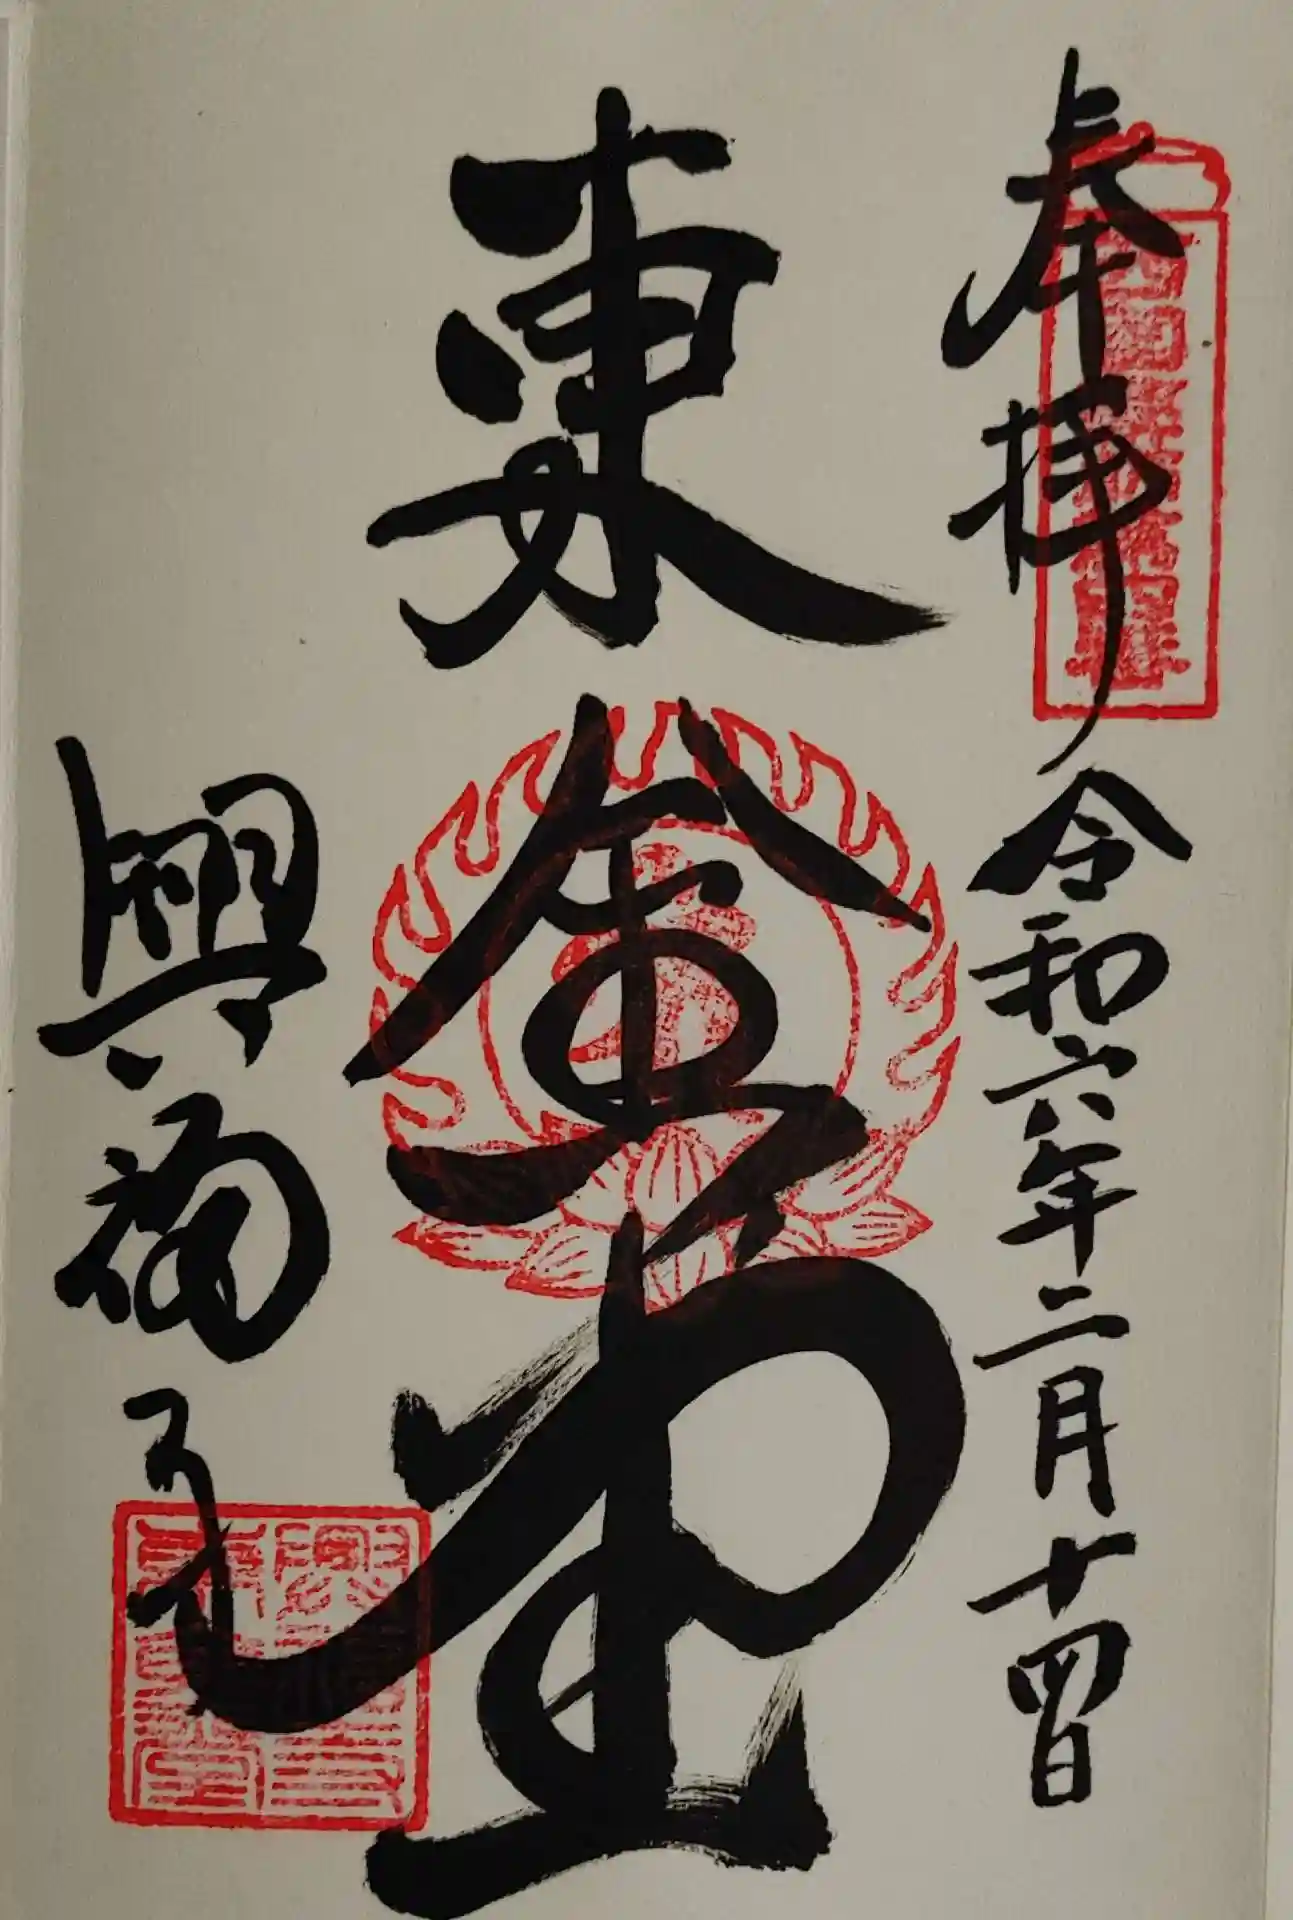 奉拝 令和六年二月十四日
東金堂
興福寺